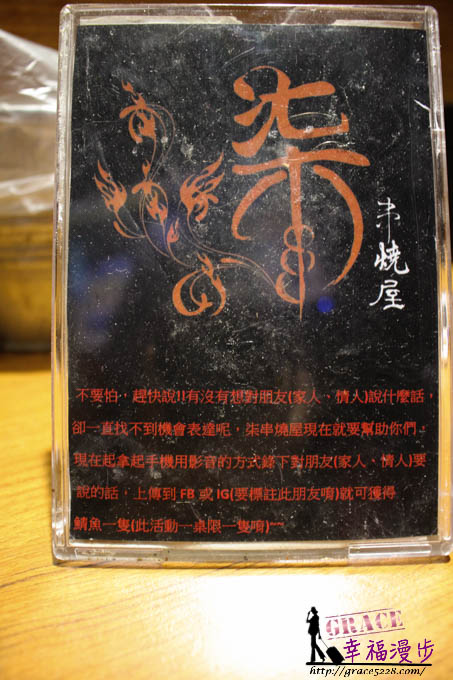 柒
串燒屋
不要怕﹐趕快說!!有沒有想對朋友(家人、情人)說什麼話，
卻一直找不到機會表達呢﹐柒串燒屋現在就要幫助你們..
現在起拿起手機用影音的方式錄下對朋友(家人、情人)要
說的話﹐上傳到 FB 或 IG(要標註此朋友唷)就可獲得
鯖魚一隻(此活動一桌限一隻唷)~~
GRACE
幸福漫步
http://grace5228.com/